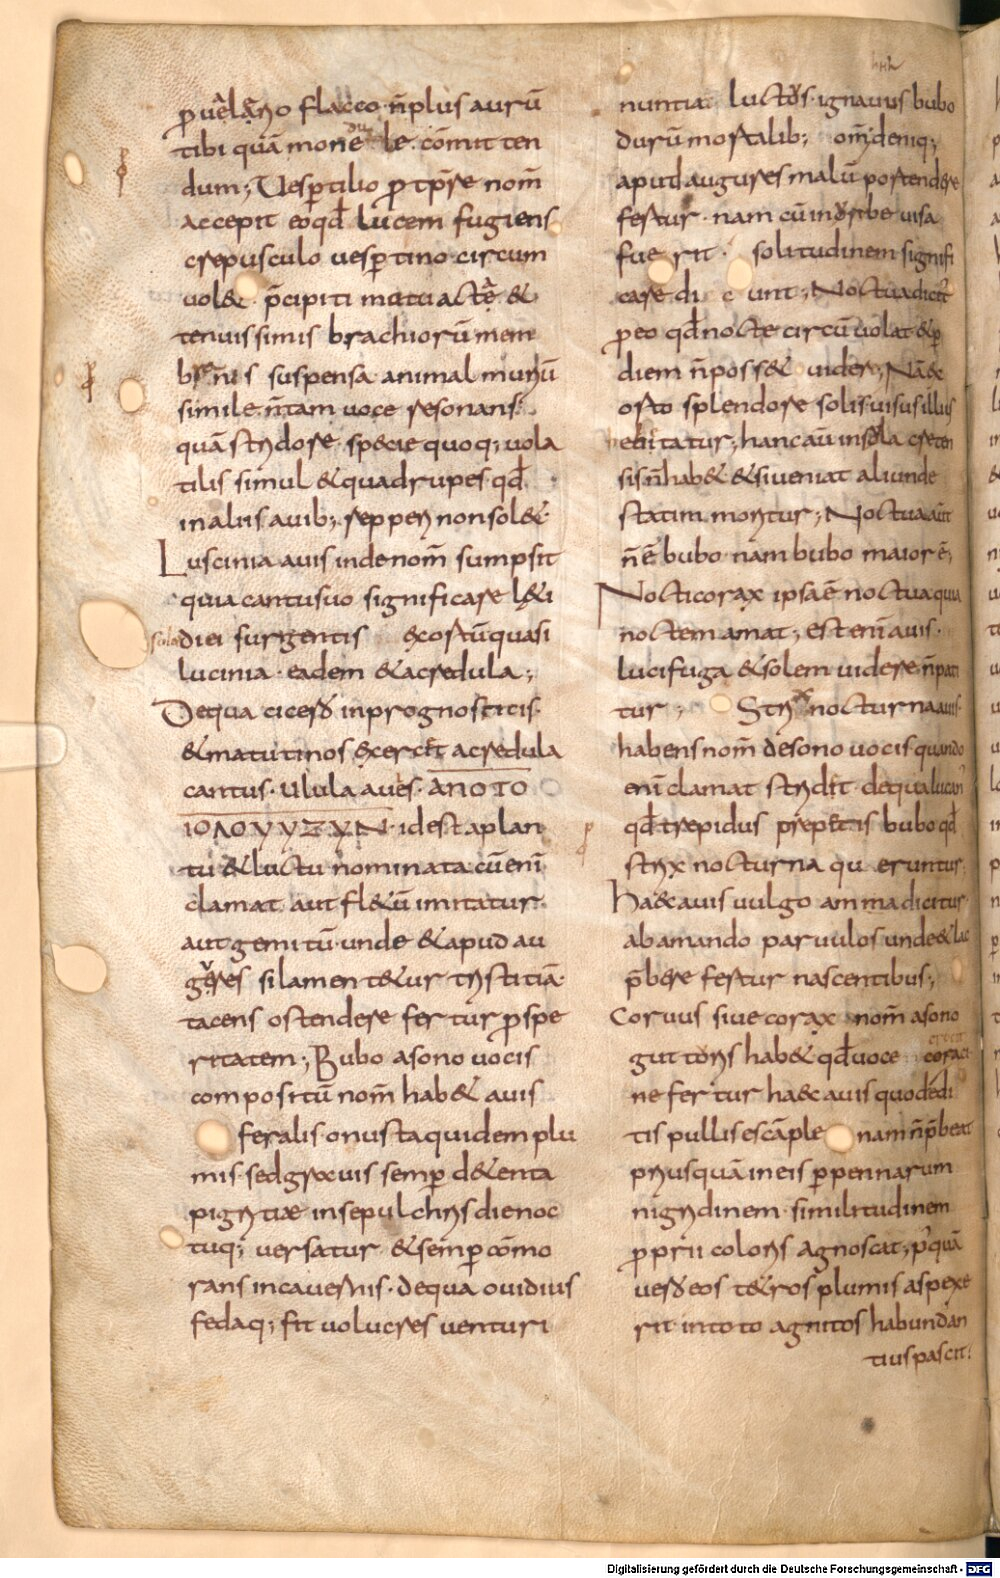 ꝑ uelano flacco · n̄ plus aurū
tibi quā monedule · cōmitten
dum; Uesꝑtilio ꝓ tp̄re nom̄
accepit eo qđ lucem fugiens
crepusculo uesꝑtino circum
uol& p̄cipiti motu acta &
tenuissimis brachiorū mem
branis suspensa animal murū
simile · n̄ tam uoce resonans ·
quā stridore · specie quoq; uola
tilis simul & quadrupes · qđ
in aliis auib; repperi non sol&
Luscinia auis inde nom̄ sumpsit
quia cantu suo significare l&i
diei surgentis &costū quasi
lucinia · eadem & acredula;
De qua cicero in prognosticis ·
& matutinos &cercet acredula
cantus · Ulula aues · ΑΠΟ ΤΟ
ΙΟΛΟΥΥΖΥΝ · idest a plan
tu & luctu nominata cū eni
clamat aut fl&ū imitatur ·
aut gemitū · unde & apud au
gures si lament&ur tristitiā ·
tacens ostendere fertur prospe
ritatem; Bubo a sono uocis
compositū nom̄ hab& auis
feralis onusta quidem plu
mis · sed graui semꝑ d&enta
pigritiae in sepulchris die noc
tuq; uersatur & semꝑ cōmo
rans in cauernis · de qua ouidius
fedaq; fit uolucres uenturi
nuntia luctos · ignauus bubo
durū mortalib; om̄ deniq;
apud augures malū portendere
fertur · nam cū in orbe uisa
fuerit · solitudinem signifi
care dicunt; Noctua dicit̄
ꝑ eo qđ nocte circū uolat & ꝑ
diem n̄ poss& uidere; Nā &
orto splendore solis uisus illius
ebitatur; hanc aū insola creten
sis n̄ hab& & si ueniat aliunde
statim moritur; Noctua aūt
n̄ ē bubo · nam bubo maior ē;
Nocticorax ipsa ē noctua quia
noctem amat; est eni auis ·
lucifuga & solem uidere n̄ pati
tur; Strix nocturna auis ·
habens nom̄ de sono uocis quando
eni clamat stridit de qua lucan̄
qđ trepidus p̄repetis bubo qđ
strix nocturna queruntur
ha&c auis uulgo amma dicitur
ab amando paruulos unde & lac
p̄bere fertur nascentibus;
Coruus siue corax nom̄ a sono
gutturis hab& qđ uoce coraci
ne fertur ha&c auis quod edi
tis pullis escā ple nam n̄ p̄beat
priusquā in eis ꝑ pennarum
nigridinem similitudinem
ꝓprii coloris agnoscat; p̄quā
uero eos t&ros plumis aspexe
rit · in toto agnitos habundan
tius pascit ·
Digitalisierung gefördert durch die Deutsche Forschungsgemeinschaft - DFG